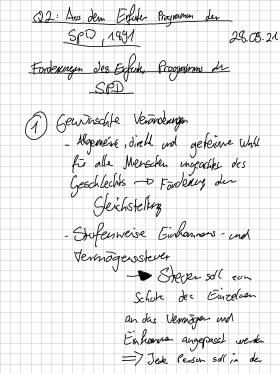 Q2: Aus dem Erfurter Programm der
SPD, 1891
28.09.21
Forderungen des Erfurt. Programms der
SPD
① Gewünschte Veränderungen
- Allgemeine, direkte und geheime Wahl
für alle Menschen ungeachtet des
Geschlechts → Förderung der
Gleichstellung
- Stufenweise Einkommens- und
Vermögenssteuer
→ Steuer soll zum
Schutz des Einzelnen
an das Vermögen und
Einkommen angepasst werden
⇒ Jede Person soll in der